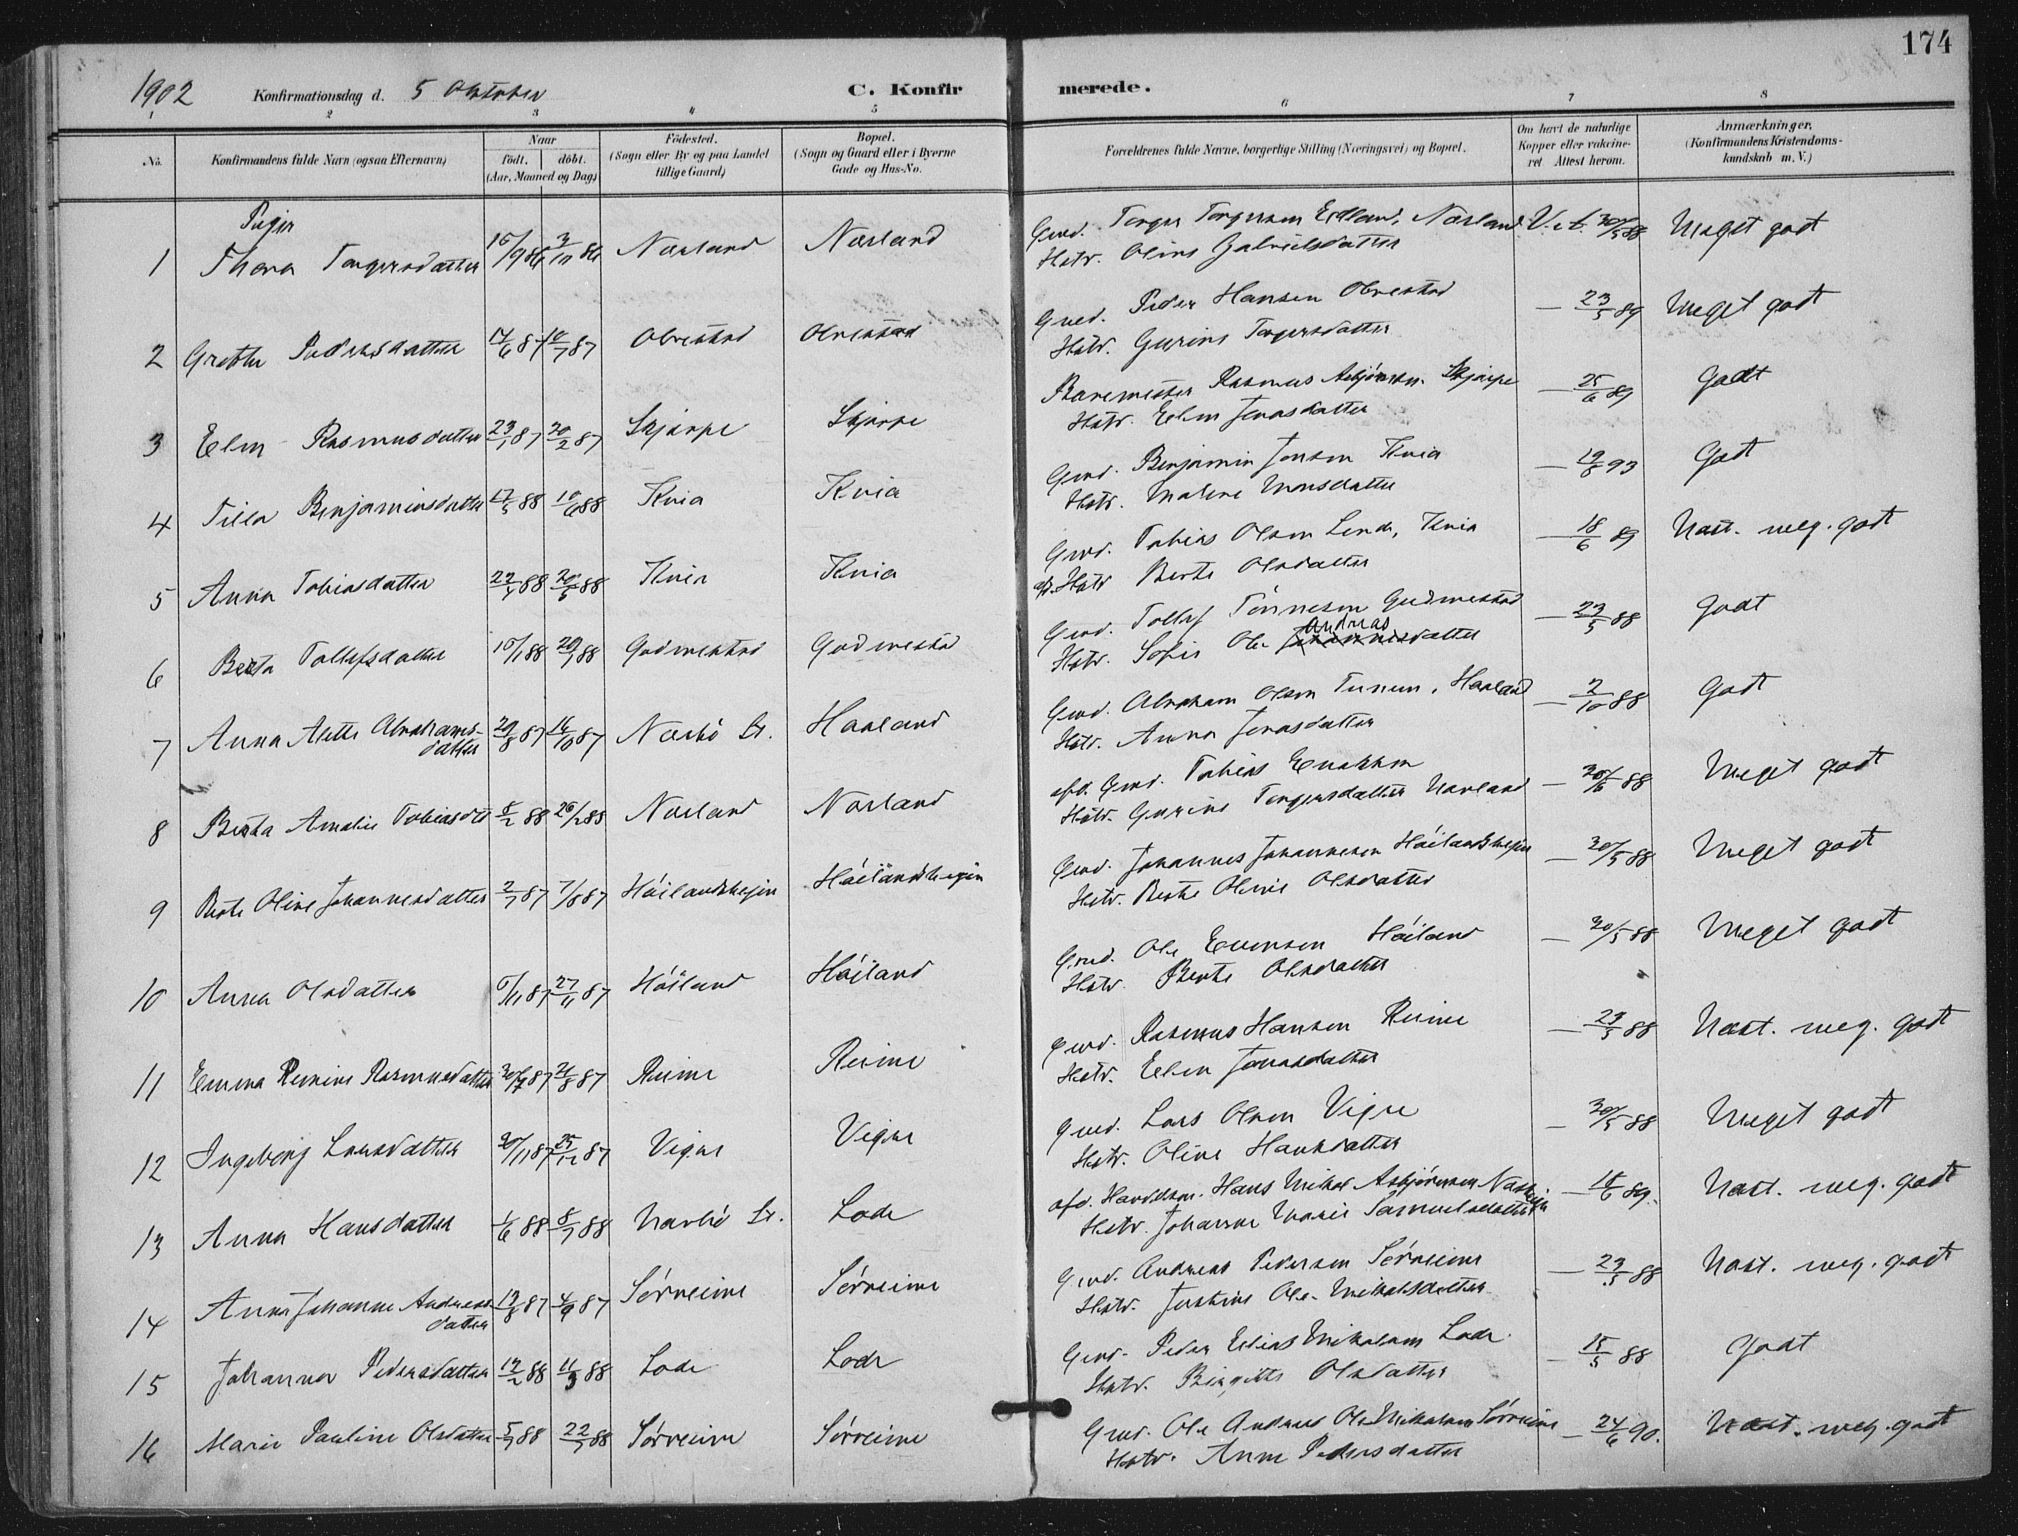 174
1902 Konfirmationsdag d. 5 Oktober C. Konfirmerede.
1 2 3 4 5 6 7 8
No. Konfirmandens fulde Navn (ogsaa Efternavn) Naar født. døbt. (Aar, Maaned og Dag) Fødested. (Sogn eller By og paa Landet tillige Gaard) Bopæl. (Sogn og Gaard eller i Byerne Gade og Hus-No. Forældrenes fulde Navne, borgerlige Stilling (Næringsvei) og Bopæl. Om havt de naturlige Kopper eller vaccineret Attest herom. Anmærkninger. (Konfirmandens Kristendomskundskab m. V.)
Piger
1 Thora Torgersdatter 3/10 86 Nærland Nærland Gmd. Torger Torgersen Nærland Meget godt
Hstr. Oline Gabrielsdatter
2 Grethe Pedersdatter Obrestad Obrestad Gmd. Peder Hansen Obrestad – 23/5 89 Meget godt
Hstr. Gurine Torgersdatter
3 Elen Rasmusdatter 23/1 87 20/2 87 Skjærpe Skjærpe Banemester Rasmus Asbjørnsen Skjærpe – 25/6 89 Godt
Hstr. Elen Jonasdatter
4 Benjaminsdatter 10/6 88 Kvia Kvia Gmd. Benjamin Jonsen Kvia – 93 Godt
Hstr. Malene Monsdatter
5 Anna Tobiasdatter 88 20/5 88 Kvia Kvia Gmd. Tobias Olsen Lende, Kvia – 18/6 89 Næst. meg. godt
Hstr Berte Olsdatter
6 Berta Tollefsdatter 88 88 Gudmestad Gudmestad Gmd. Tollef Tønnesen Gudmestad – 23/5 88 Godt
Hstr. Sofie Ole Andreasdatter
7 Anna Abrahamsdatter 87 16/10 87 Nærbø St. Haaland Gmd. Abraham Olsen Haaland – 2/10 88 Godt
Hstr. Anna Jonasdatter
8 Berta Amalie Tobiasdtr 8/2 88 26/2 88 Nærland Nærland Gmd. Tobias – 88 Meget godt
Hstr. Gurine Torgersdatter Nærland
9 Berte Oline Johannesdatter 2/7 87 7/8 87 Høilandshejen Høilandshejen Gmd. Johannes Johannesen Høilandshejen – 30/5 88 Meget godt
Hstr. Berte Oline Olsdatter
10 Anna Olsdatter 6/11 87 27/11 87 Høiland Høiland Gmd. Ole Evensen Høiland – 30/5 88 Meget godt
Hstr. Berte Olsdatter
11 Emma Rasmusdatter 30/7 87 21/8 87 Reime Reime Gmd. Rasmus Hansen Reime – 23/5 88 Næst. meg. godt
Hstr. Elen Jonasdatter
12 Ingeborg Larsdatter 30/11 87 25/12 87 Vigre Vigre Gmd. Lars Olsen Vigre – 30/5 88 Meget godt
Hstr. Oline Hansdatter
13 Anna Hansdatter 1/6 88 8/7 88 Nærbø St. Lode Hans Mikal Asbjørnsen – 18/6 89. Næst. meg. godt
Hstr. Johanne Marie Samuelsdatter
14 Anna Johanne Andreasdatter 87 4/9 87 Sørreime Sørreime Gmd. Andreas Pedersen Sørreime – 23/5 88 Næst. meg. godt
Hstr. Justine Ole-Mikalsdatter
15 Johanna Pedersdatter 88 11/3 88 Lode Lode Gmd. Peder Elias Mikalsen Lode – 15/5 88 Godt
Hstr. Birgitte Olsdatter
16 Marie Pauline Olsdatter 5/7 88 22/7 88 Sørreime Sørreime Gmd. Ole Andreas Ole-Mikalsen Sørreime – 24/6 90. Næst. meg. godt
Hstr. Anne Pedersdatter